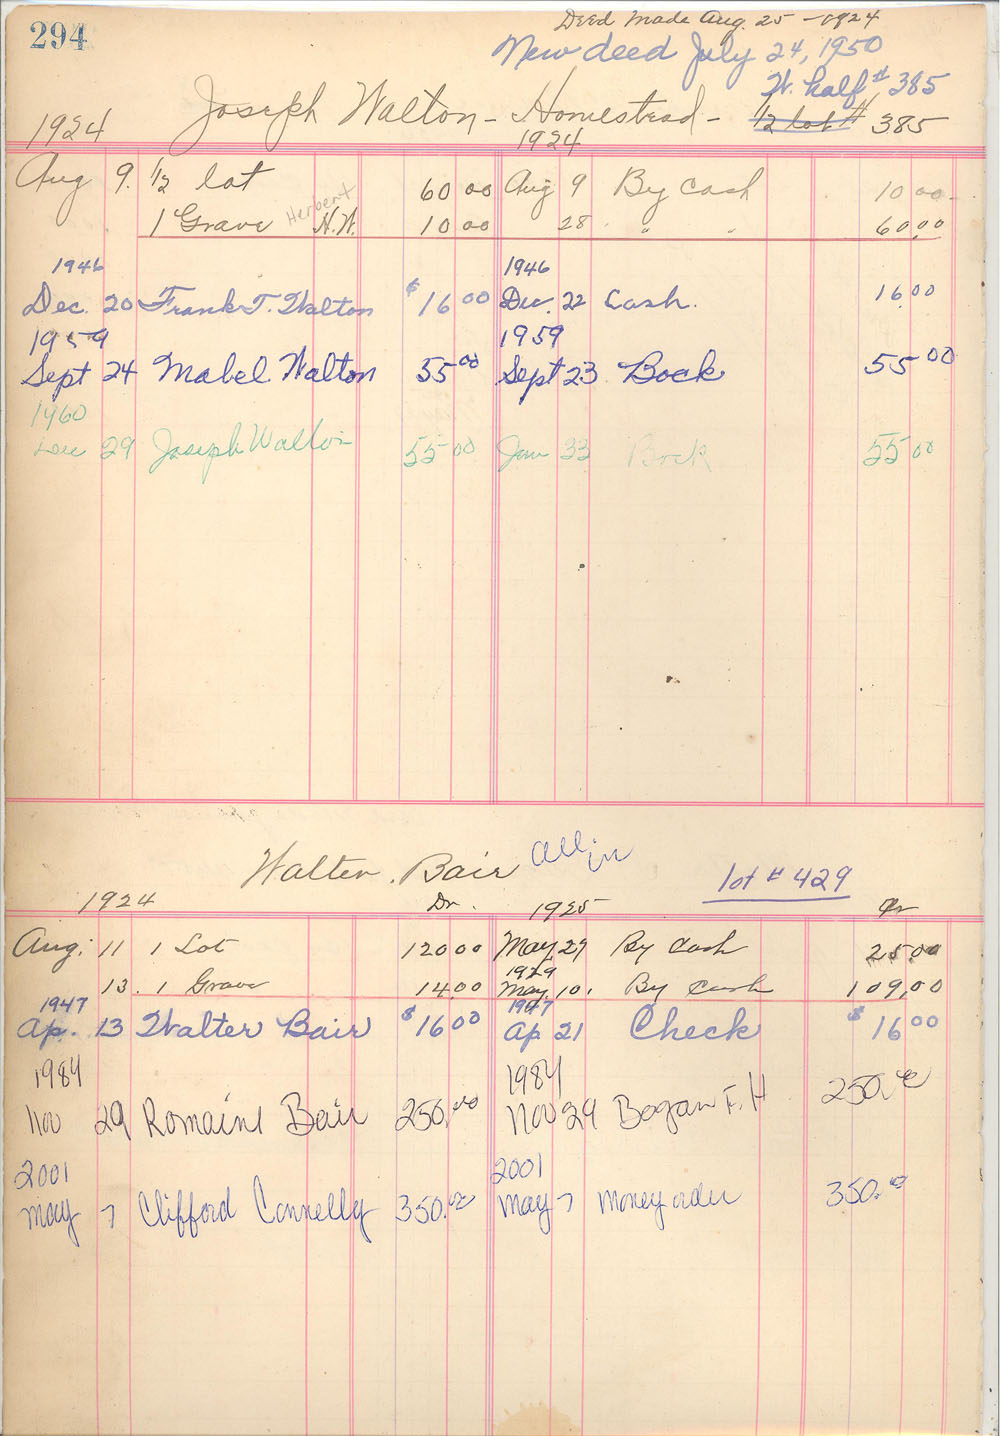 294
Deed Made Aug. 25 - 1924
New deed July 24, 1950
W. half # 385
Joseph Walton - Homestead - 1/2 lot # 385
1924 1924
Aug 9. 1/2 lot 60 00 Aug 9 By Cash 10 00
1 Grave Herbert N.W. 10 00 28 " " 60.00
1946 1946
Dec. 20 Frank T. Walton $16 00 Dec. 22 Cash. 16.00
1959 1959
Sept 24 Mabel Walton 55 00 Sept 23 Bock 55 00
1960
Dec 29 Joseph Walton 55 00 Jan Bock 55 00
Walter Bair all in
lot # 429
1924 Dr. 1925 Cr
Aug. 11 1 Lot 120 00 May 29 By Cash 25.00
1929
13. 1 Grave 14.00 May 10. By Cash 109.00
1947 1947
Ap. 13 Walter Bair $16 00 Ap 21 Check $16 00
1984 1984
Nov 29 Romaine Bair 250.00 Nov 29 Bogan F. H 250.00
2001 2001
May 7 Clifford Connelly 350.00 May 7 Money order 350.00